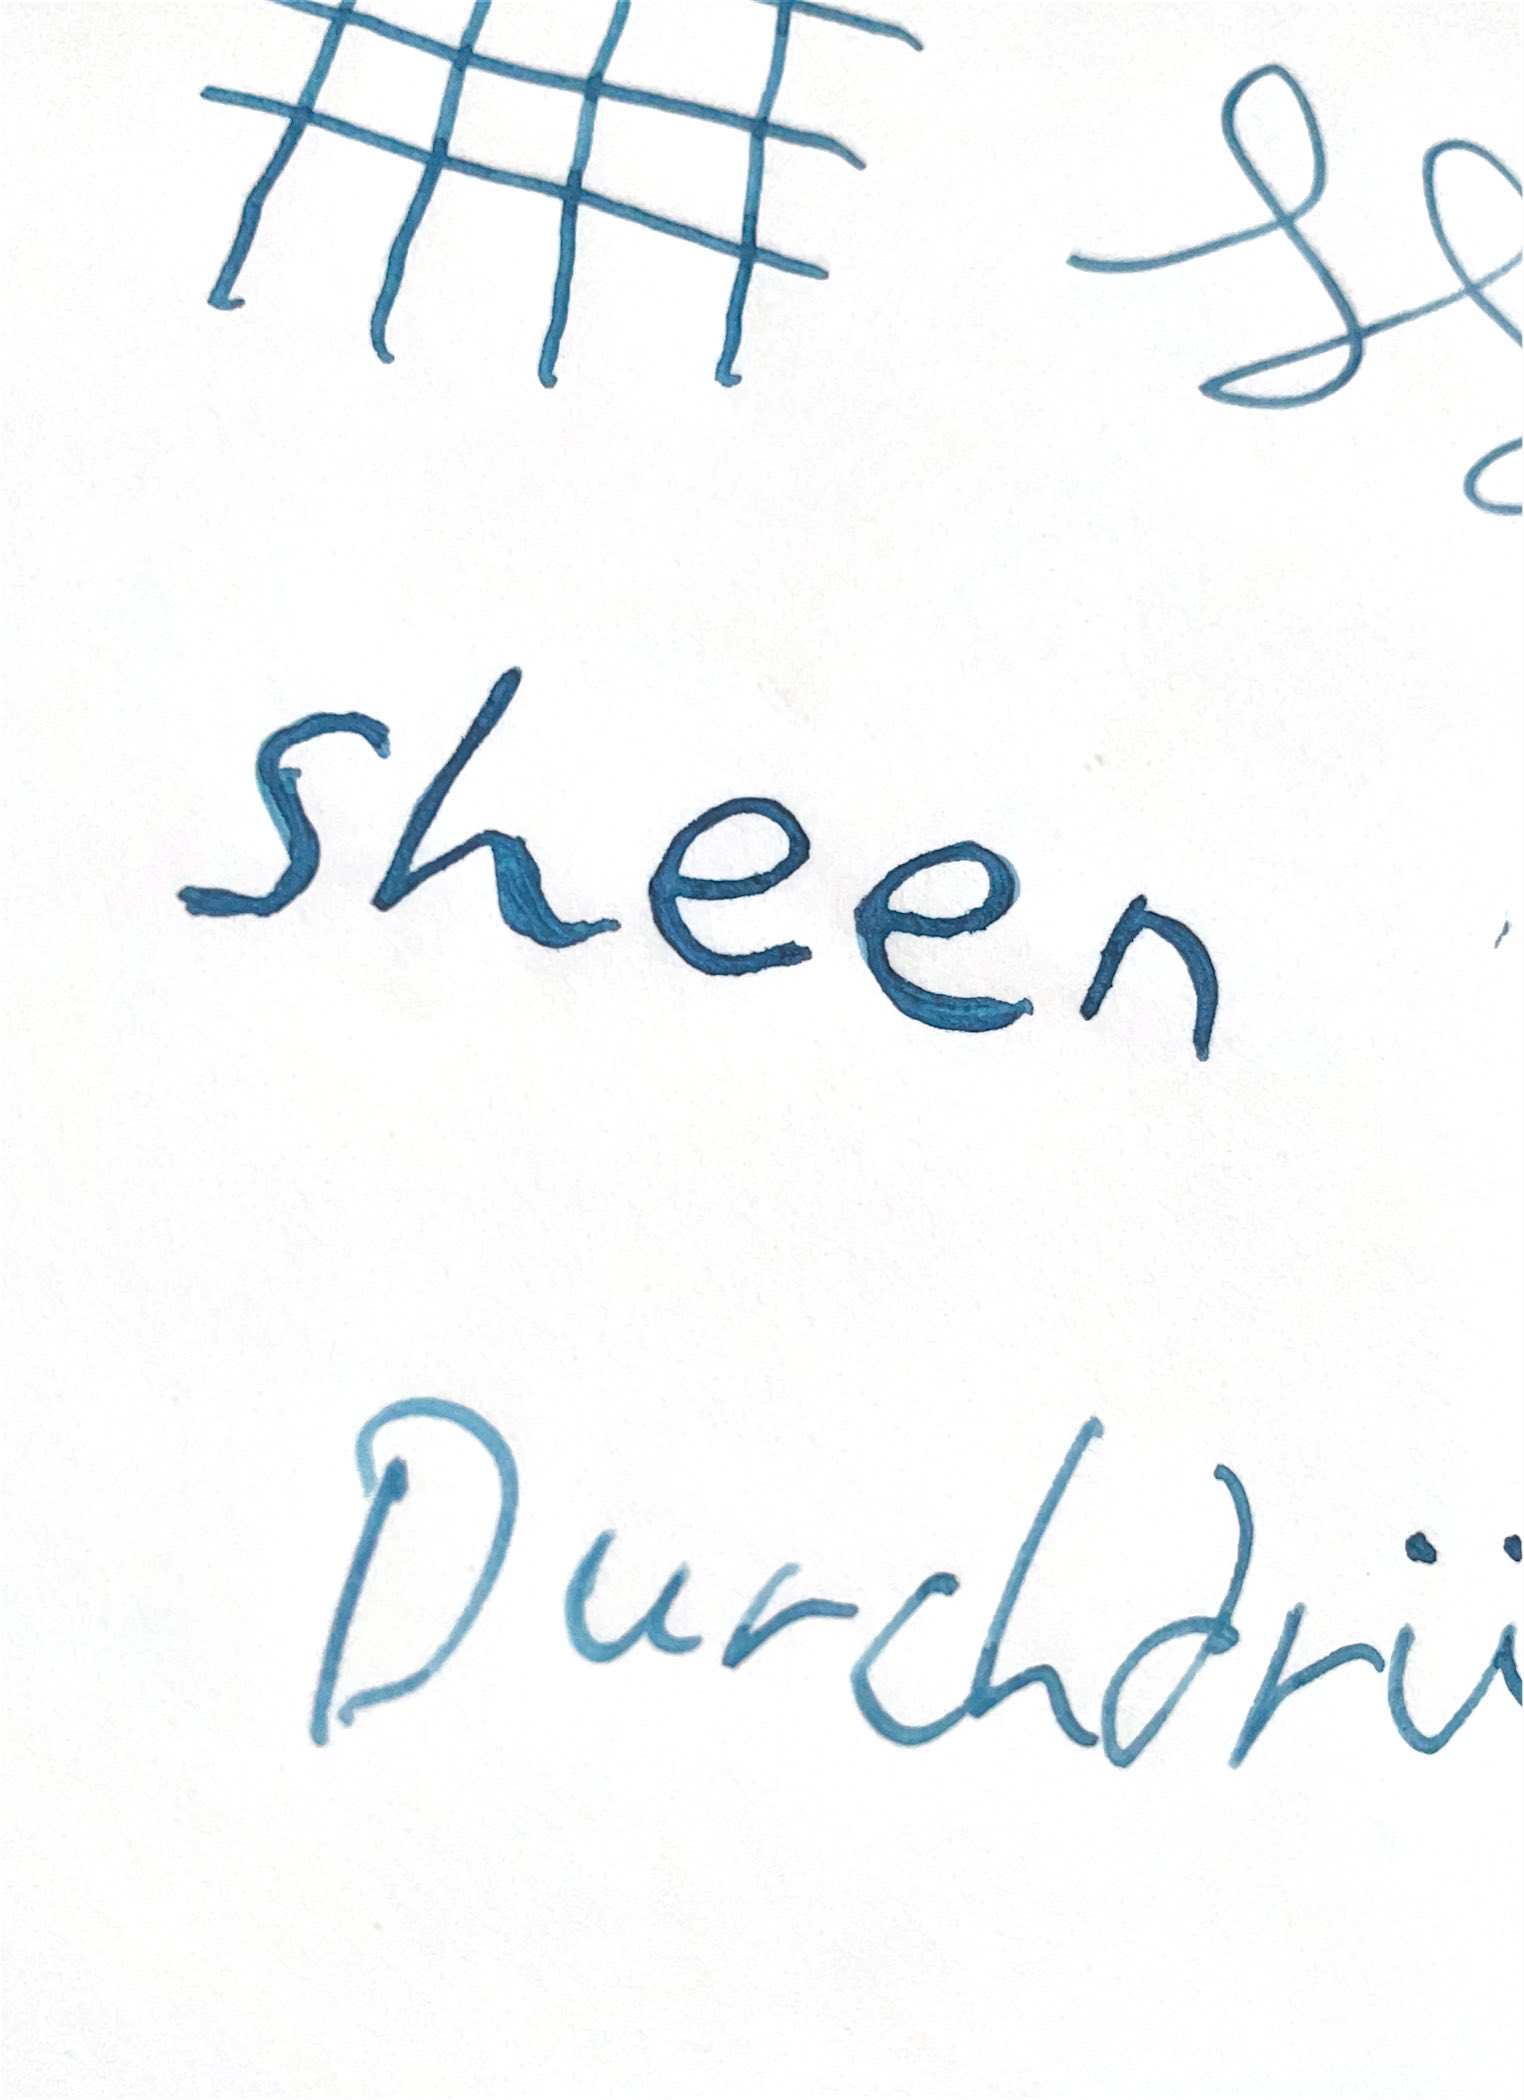 sheen
Durchdrü